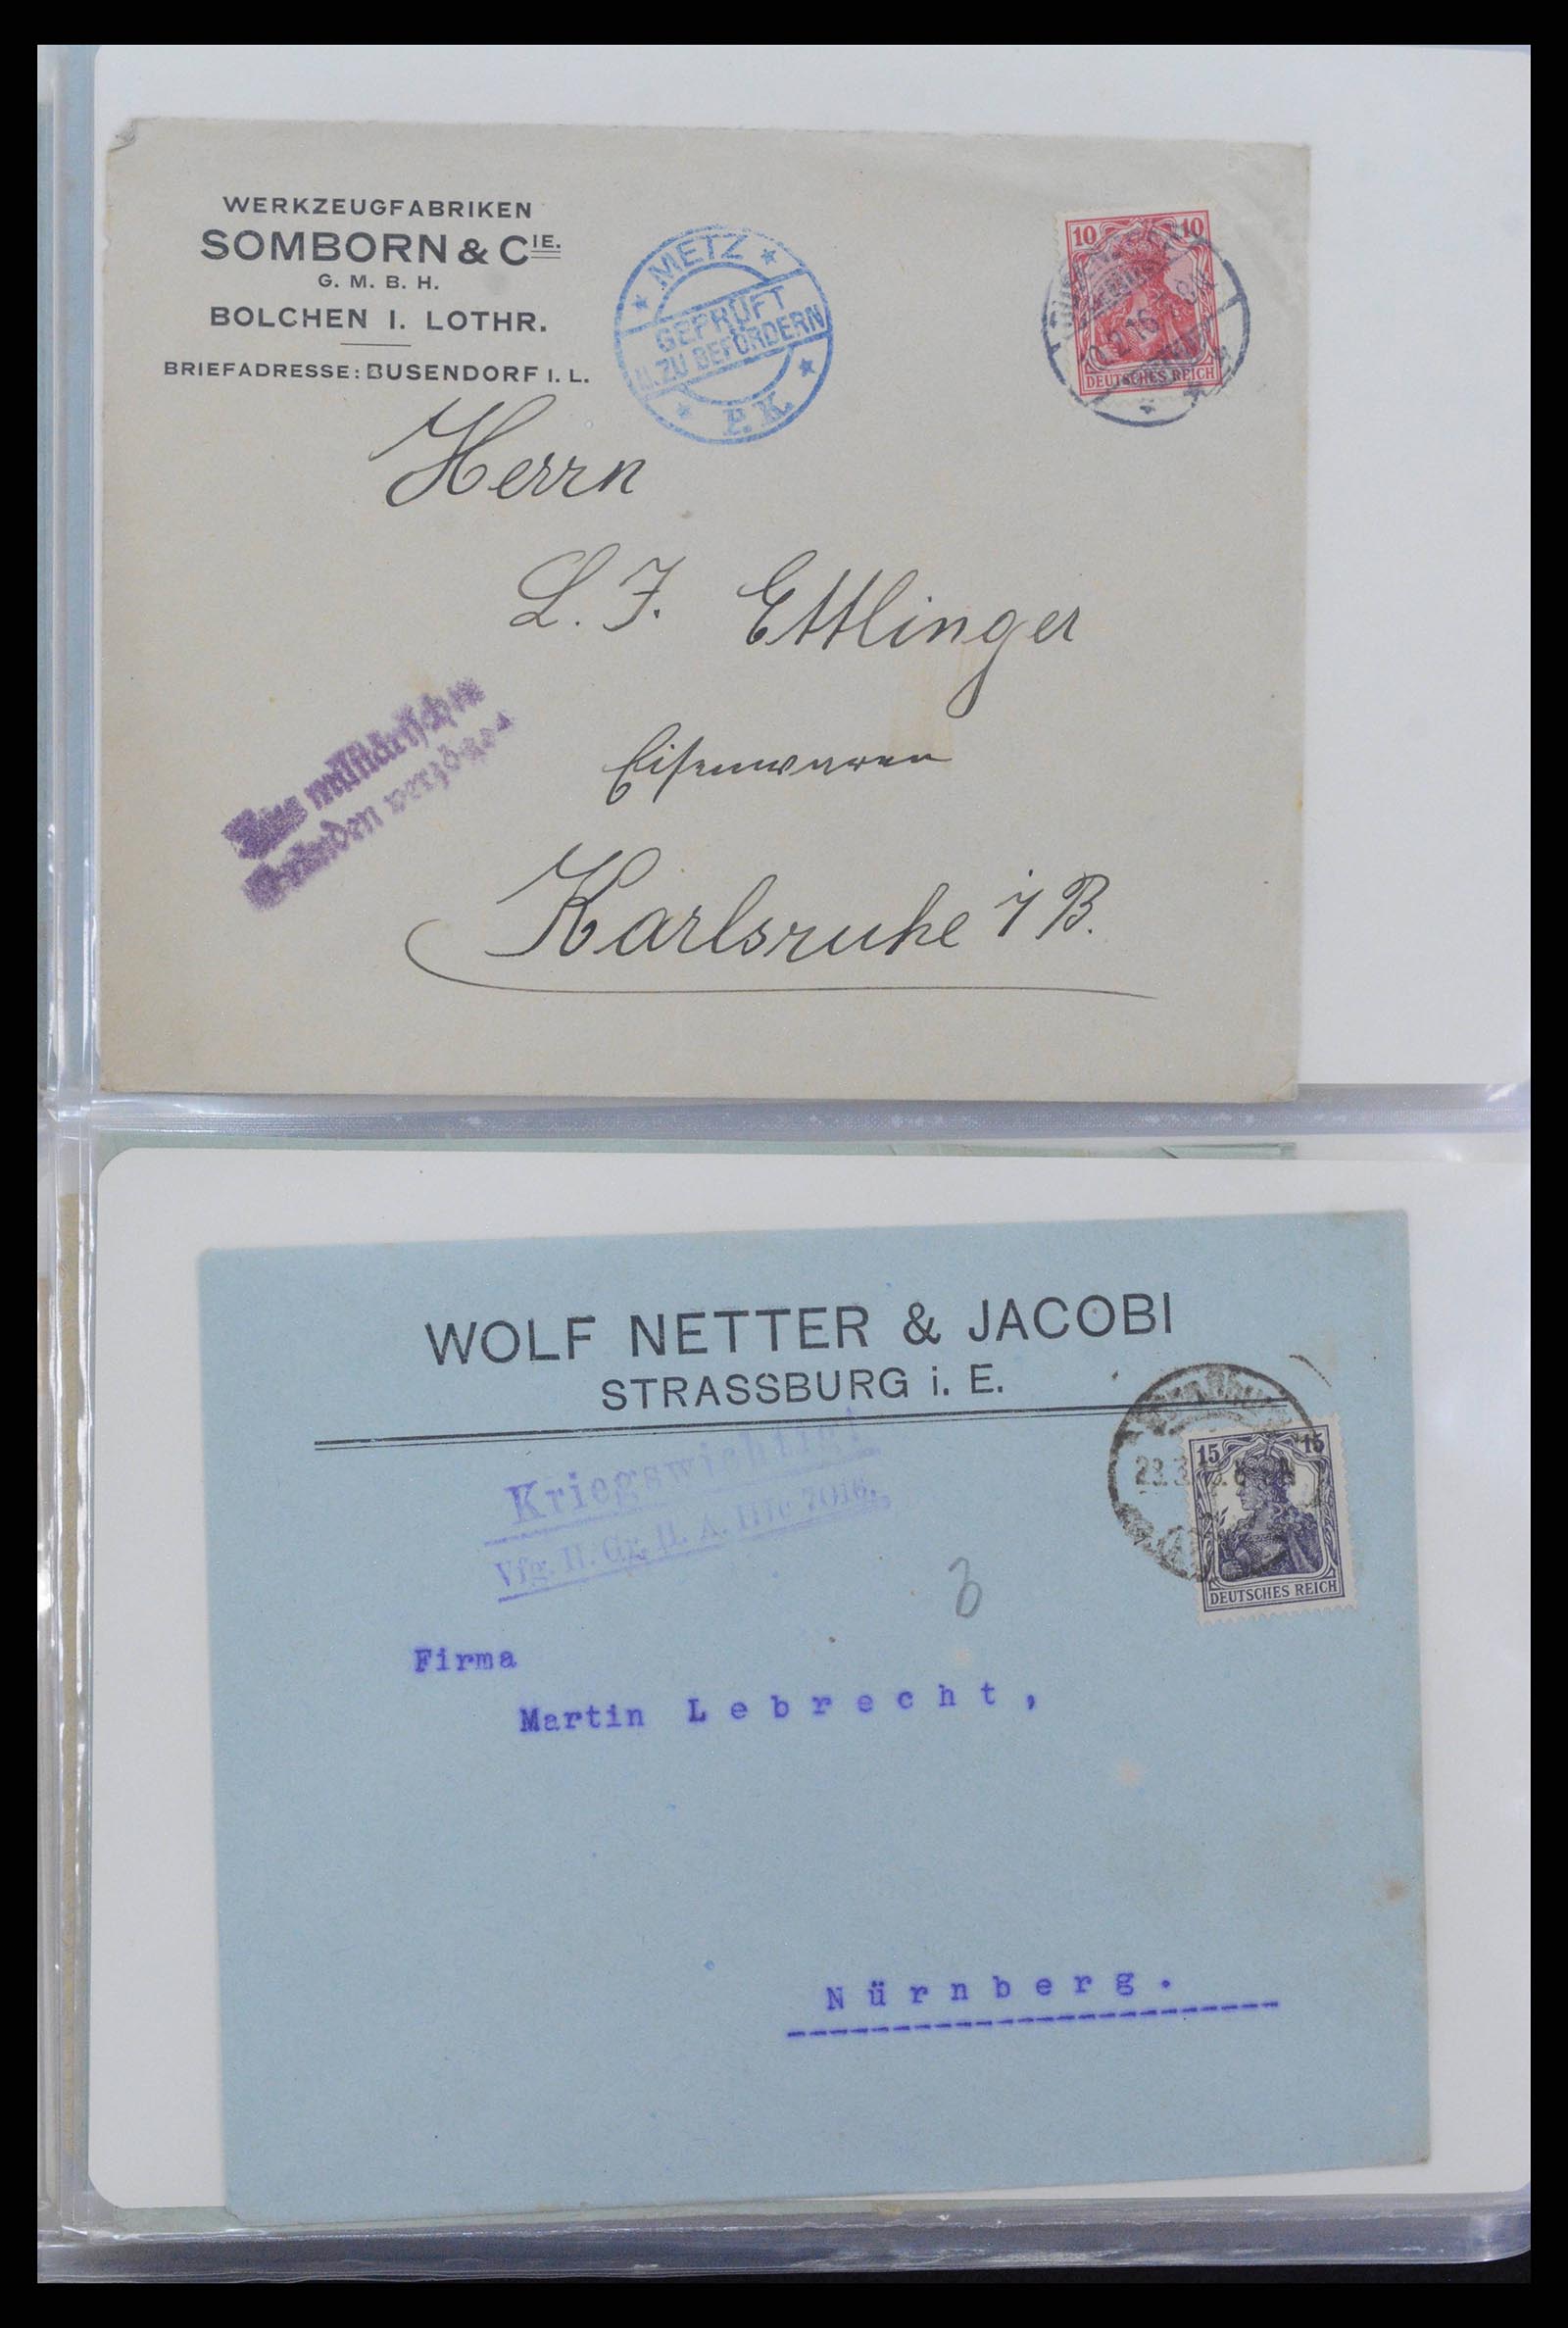 WERKZEUGFABRIKEN
SOMBORN & CIE.
G. M. B. H.
BOLCHEN I. LOTHR.
BRIEFADRESSE: BUSENDORF I. L.
METZ
GEPRÜFT
U. ZU BEFÖRDERN
P. K.
10 10
DEUTSCHES REICH
Herrn
L. F. Ettlinger
Eisenwaren
Karlsruhe i/B.
Aus militärischen
Gründen verzögert
WOLF NETTER & JACOBI
STRASSBURG i. E.
Kriegswichtig!
Vfg. H. Gr. H. A. IIIc 7016.
15 15
DEUTSCHES REICH
Firma
Martin Lebrecht,
Nürnberg.